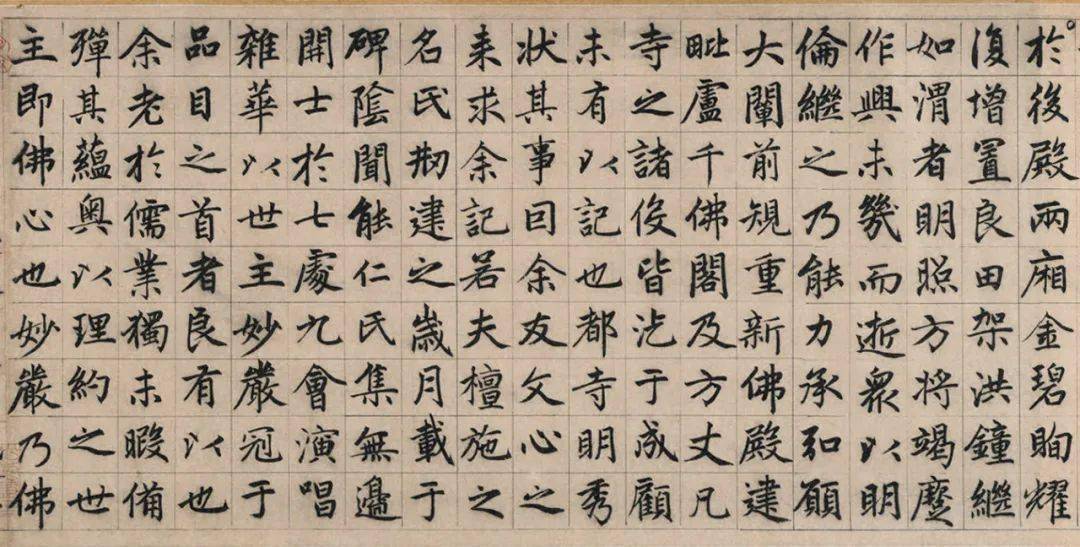 於後殿兩廂金碧眴耀
復增置良田架洪鐘繼
如渭者明照方將竭
作興未幾而逝衆以明
倫繼之乃能力承弘願
大闡前規重新佛殿建
毗盧千佛閣及方丈凡
寺之諸役皆汔于成顧
未有以記也都寺明秀
狀其事回余友文心之
来求余記若夫檀施之
名氏刱建之歲月載于
碑陰聞能仁氏集無邊
開士於七處九會演唱
雜華以世主妙嚴冠于
品目之首者良有以也
余老於儒業獨未暇備
殫其蘊奥以理約之世
主即佛心也妙嚴乃佛